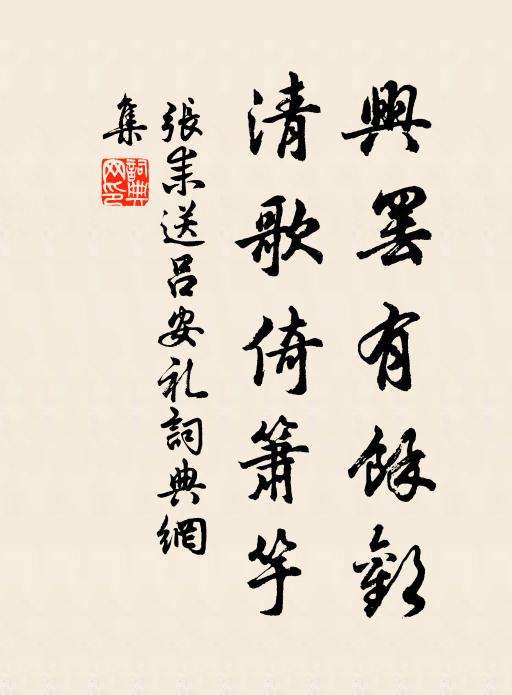 興罷有餘歡
清歌倚簫竽
張耒送呂安礼詞典網
集
詞典網印